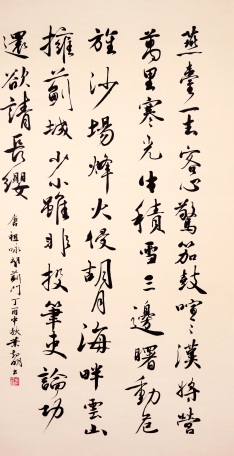 燕臺一去客心驚笳鼓喧々漢將營
萬里寒光生積雪三邊曙動危
旌沙場烽火侵胡月海畔雲山
擁薊城少小雖非投筆吏論功
還欲請長纓
唐祖咏望薊門丁酉中秋葉明書